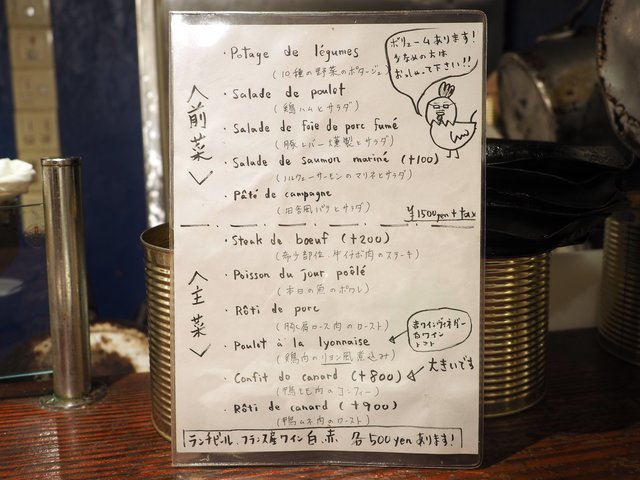 ・Potage de légumes
(10種の野菜のポタージュ)
・Salade de poulet
(鶏ハムとサラダ)
・Salade de foie de porc fumé
(豚レバー燻製とサラダ)
・Salade de saumon mariné (+100)
(ノルウェーサーモンのマリネとサラダ)
・Pâté de campagne
(田舎風パテとサラダ)
〈前菜〉
ボリュームあります!
少なめの方は
おっしゃって下さい!!
¥1500yen+tax
・Steak de bœuf (+200)
(希少部位 牛イチボ肉のステーキ)
・Poisson du jour poêlé
(本日の魚のポワレ)
・Rôti de porc
(豚肩ロース肉のロースト)
・Poulet à la lyonnaise
(鶏肉のリヨン風煮込み)
・Confit do canard (+800)
(鴨モモ肉のコンフィー)
・Rôti de canard (+900)
(鴨ムネ肉のロースト)
〈主菜〉
赤ワインヴィネガー
白ワイン
トマト
大きいです
ランチビール、フランス産ワイン白、赤 各500yenあります!